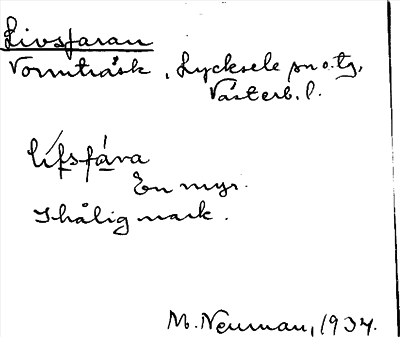 Livsfaran
Vormträsk, Lycksele sn o. tg,
Västerb. l.
lífsfáva
En myr.
Ihålig mark.
M. Neuman, 1934.